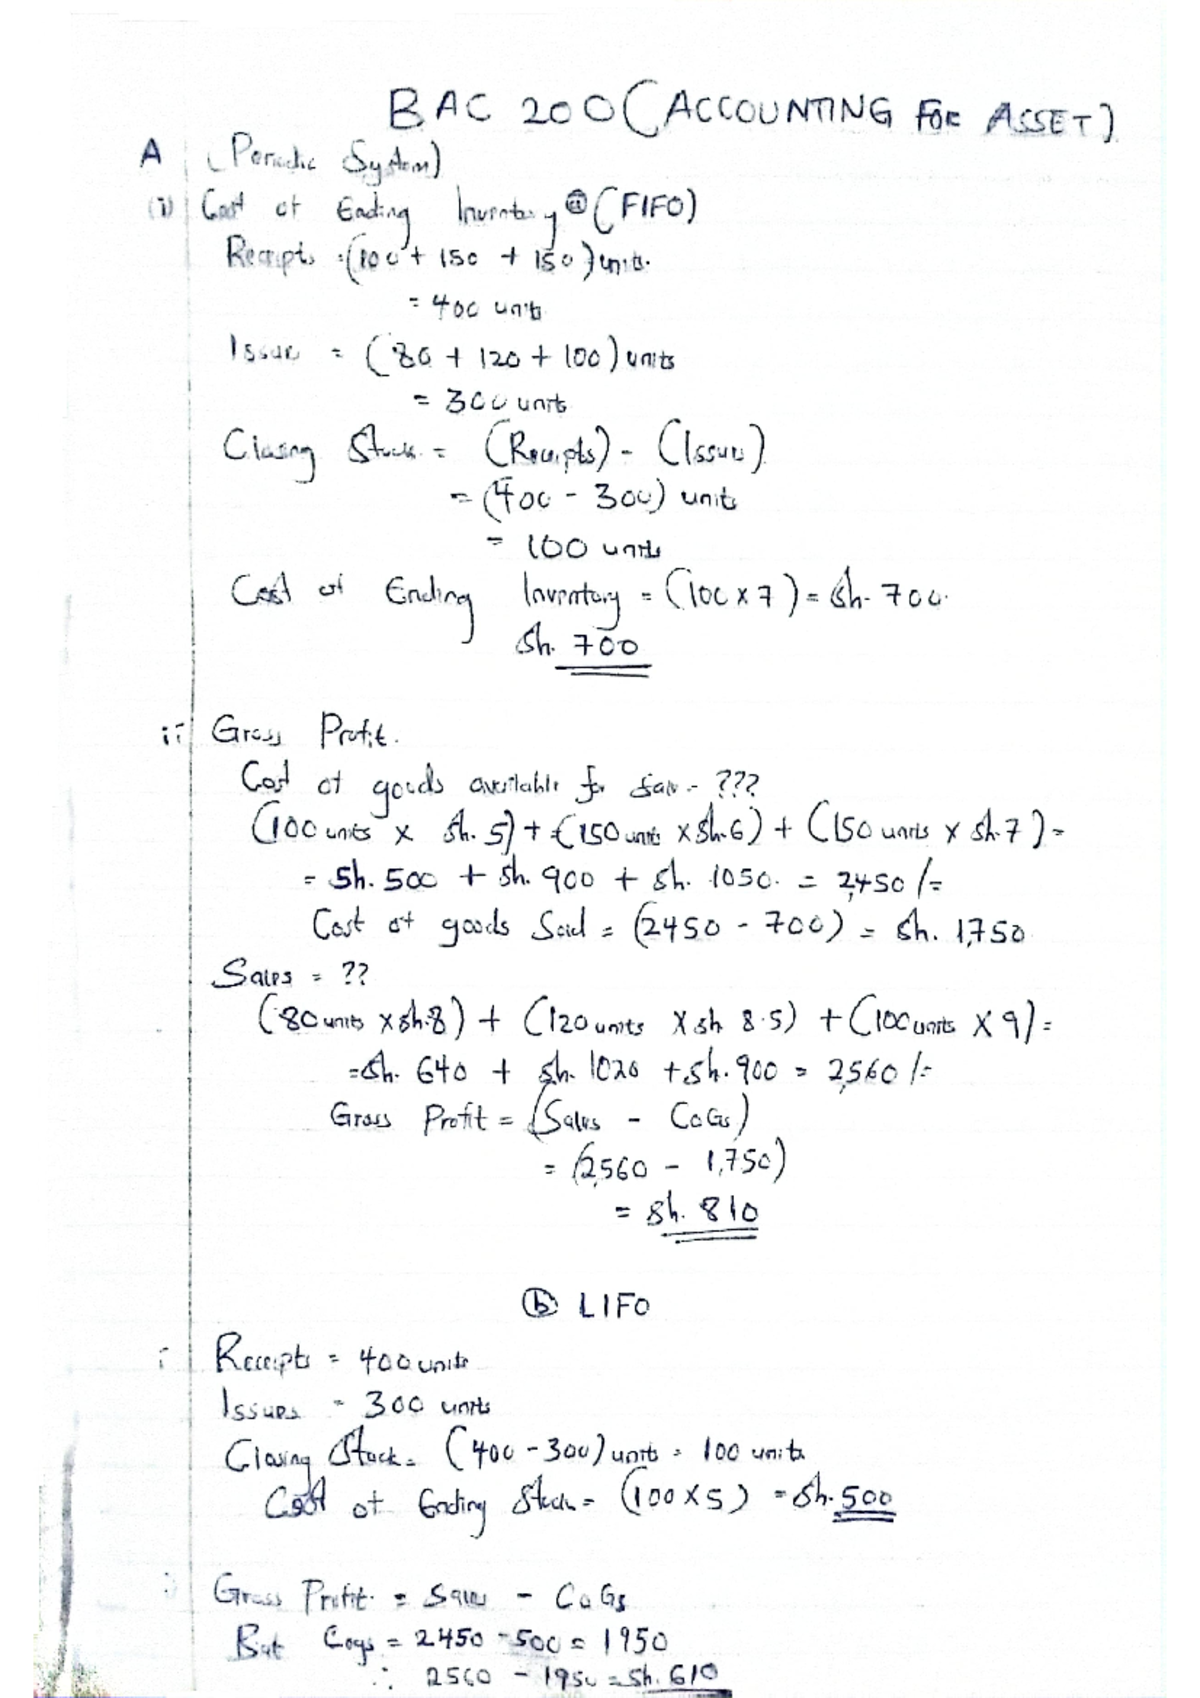 BAC 200 (ACCOUNTING FOR ASSET)
A (Periodic System)
(i) Cost of Ending Inventory @ (FIFO)
Receipts = (100 + 150 + 150) units.
= 400 units
Issues = (80 + 120 + 100) units
= 300 units
Closing Stock = (Receipts) - (Issues)
= (400 - 300) units
= 100 units
Cost of Ending Inventory = (100 x 7) = Sh. 700.
Sh. 700
ii Gross Profit.
Cost of goods available for sale - ???
(100 units x Sh. 5) + (150 units x Sh.6) + (150 units x sh.7) =
= Sh. 500 + Sh. 900 + Sh. 1050. = 2,450/=
Cost of goods Sold = (2450 - 700) = Sh. 1,750
Sales = ??
(80 units x sh.8) + (120 units x sh 8.5) + (100 units x 9) =
= Sh. 640 + Sh. 1020 + Sh. 900 = 2,560/=
Gross Profit = (Sales - CoGs)
= (2,560 - 1,750)
= Sh. 810
(b) LIFO
i Receipts = 400 units
Issues = 300 units
Closing Stock = (400 - 300) units = 100 units
Cost of Ending Stock = (100 x 5) = Sh. 500
Gross Profit = Sales - CoGs
But Cogs = 2450 - 500 = 1950
∴ 2560 - 1950 = Sh. 610